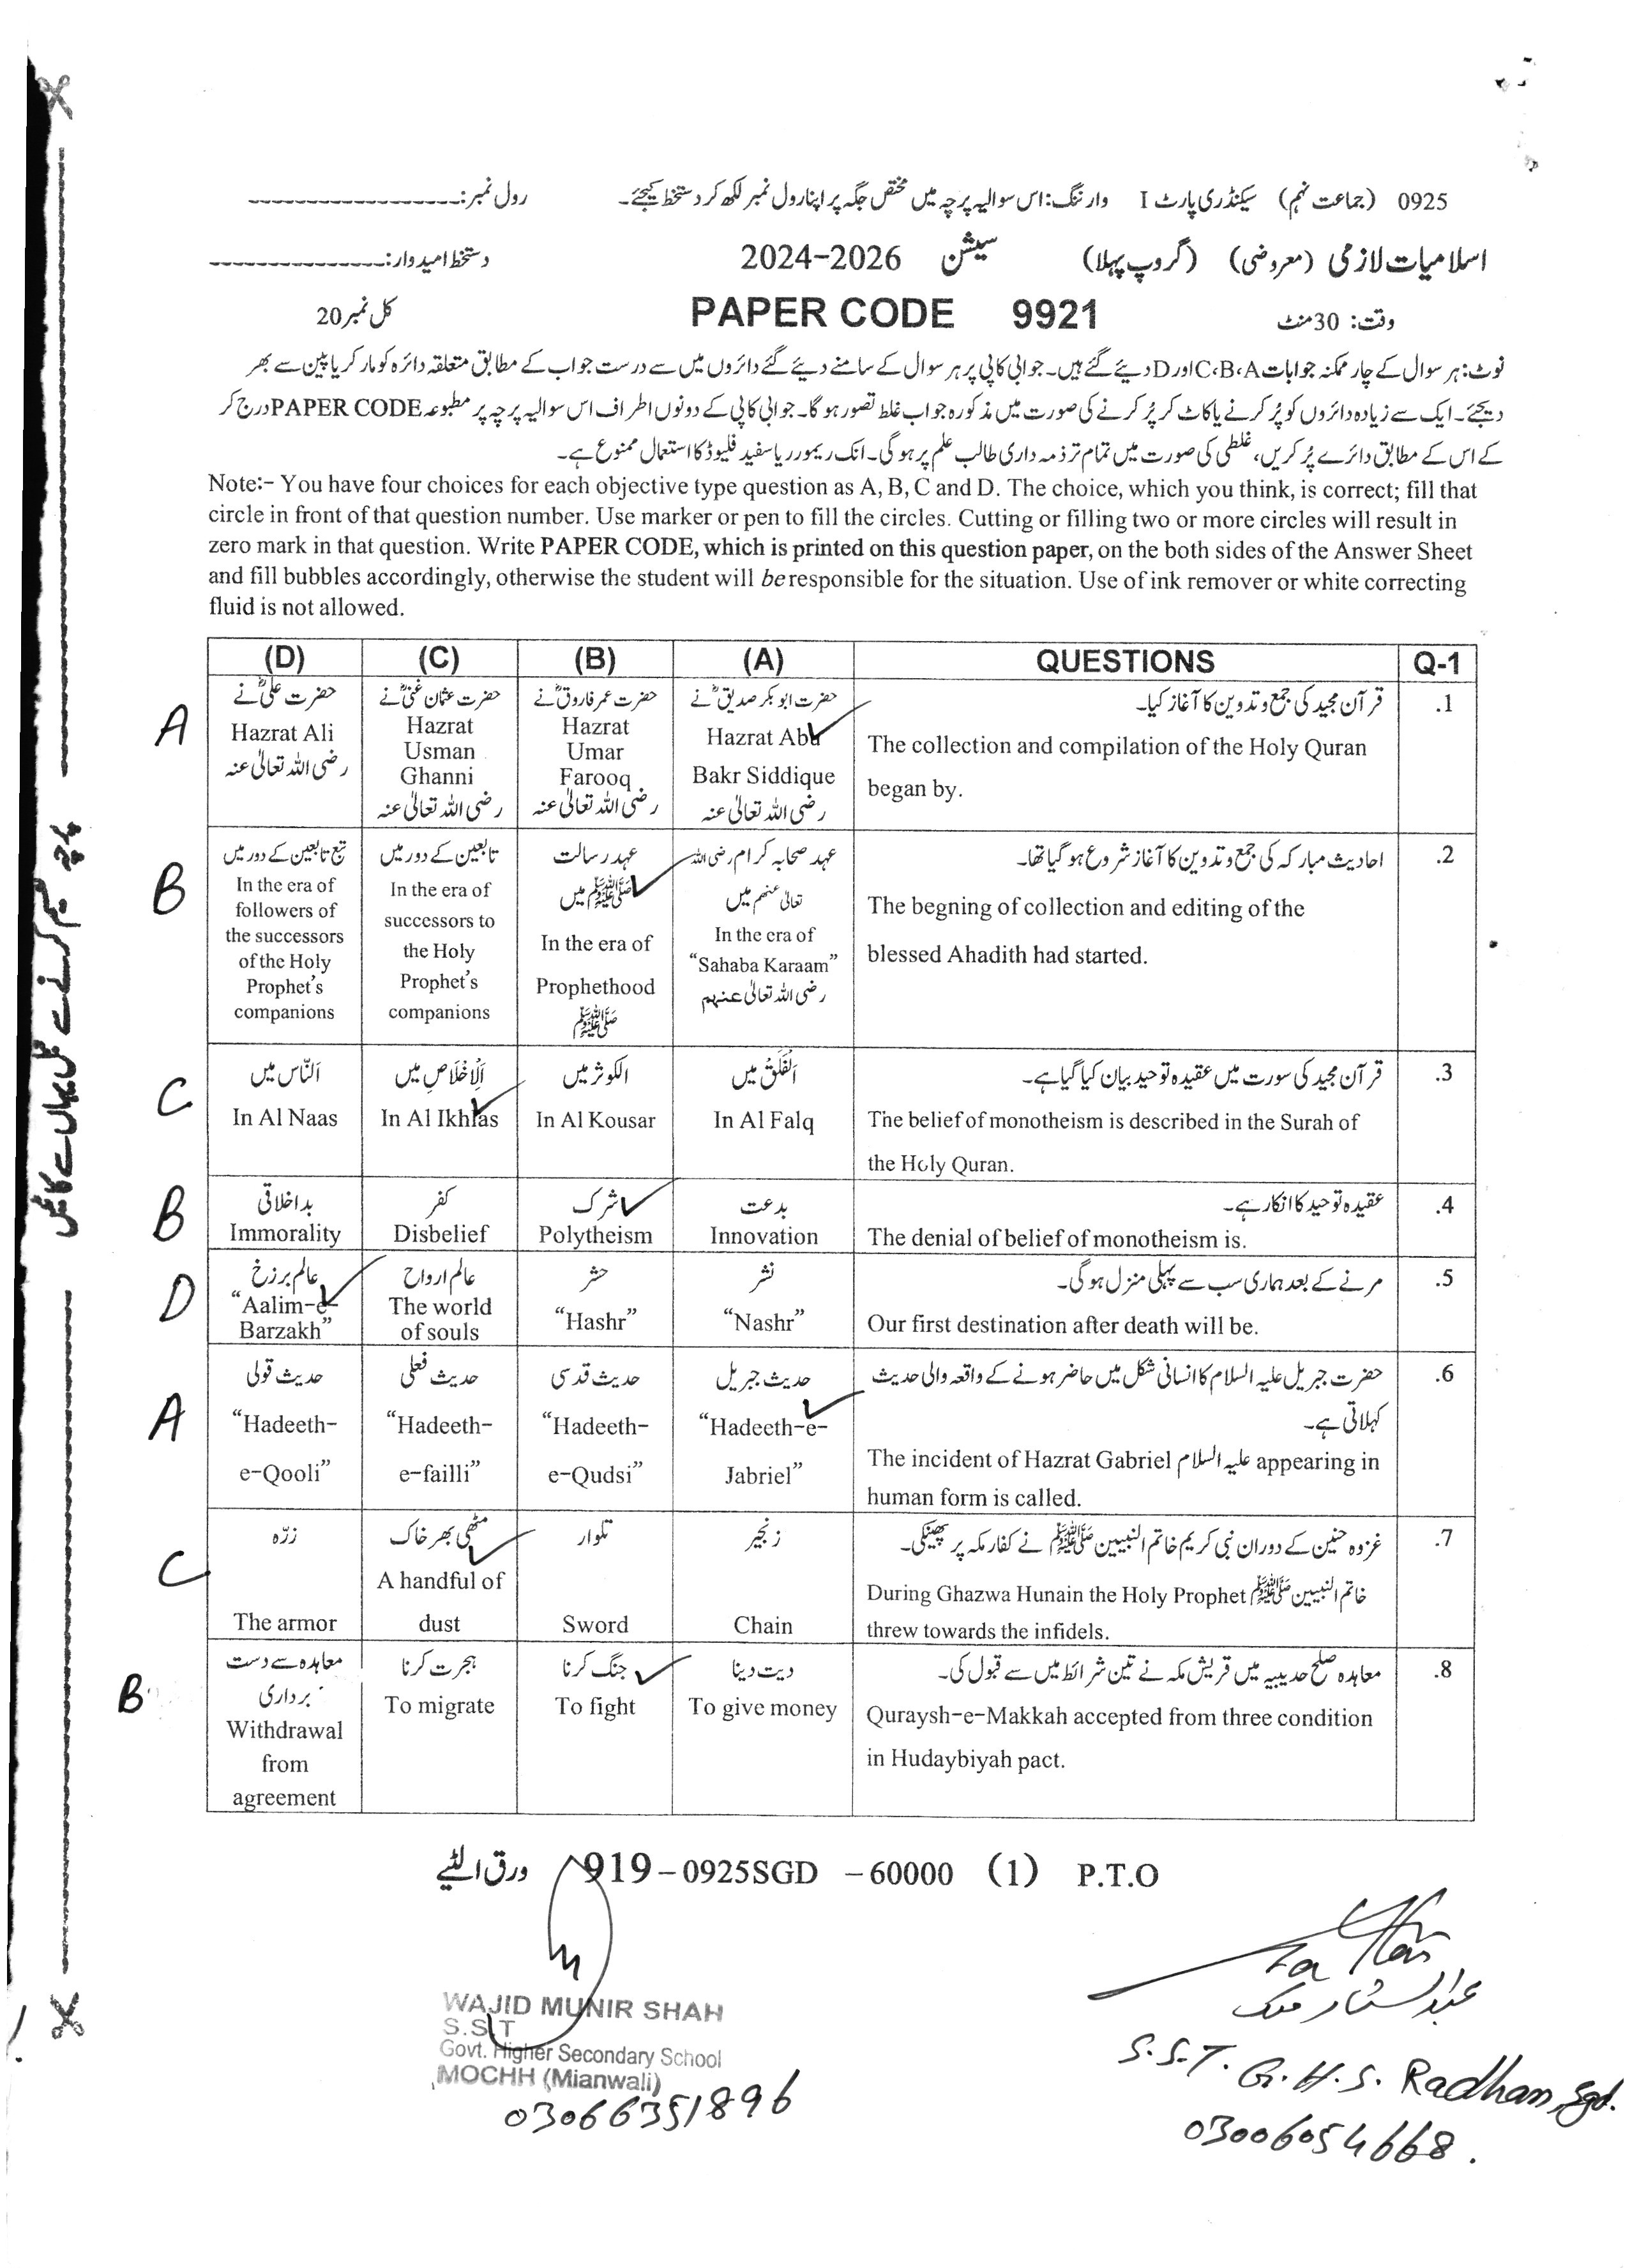 0925 (جماعت نہم) سیکنڈری پارٹ I وارننگ: اس سوالیہ پرچہ میں مختص جگہ پر اپنا رول نمبر لکھ کر دستخط کیجئے۔ رول نمبر:
اسلامیات لازمی (معروضی) (گروپ پہلا) سیشن 2024-2026 دستخط امیدوار:
وقت: 30 منٹ PAPER CODE 9921 کل نمبر 20
نوٹ: ہر سوال کے چار ممکنہ جوابات A، B، C اور D دیئے گئے ہیں۔ جوابی کاپی پر ہر سوال کے سامنے دیئے گئے دائروں میں سے درست جواب کے مطابق متعلقہ دائرہ کو مارکر یا پین سے بھر
دیجئے۔ ایک سے زیادہ دائروں کو پُر کرنے یا کاٹ کر پُر کرنے کی صورت میں مذکورہ جواب غلط تصور ہو گا۔ جوابی کاپی کے دونوں اطراف اس سوالیہ پرچہ پر مطبوعہ PAPER CODE درج کر
کے اس کے مطابق دائرے پُر کریں، غلطی کی صورت میں تمام تر ذمہ داری طالب علم پر ہو گی۔ انک ریمور ریا سفید فلیوڈ کا استعمال ممنوع ہے۔
Note:- You have four choices for each objective type question as A, B, C and D. The choice, which you think, is correct; fill that
circle in front of that question number. Use marker or pen to fill the circles. Cutting or filling two or more circles will result in
zero mark in that question. Write PAPER CODE, which is printed on this question paper, on the both sides of the Answer Sheet
and fill bubbles accordingly, otherwise the student will be responsible for the situation. Use of ink remover or white correcting
fluid is not allowed.
(D) (C) (B) (A) QUESTIONS Q-1
A
.1
قرآن مجید کی جمع و تدوین کا آغاز کیا۔
The collection and compilation of the Holy Quran
began by.
حضرت ابو بکر صدیقؓ نے
Hazrat Abu
Bakr Siddique
رضی اللہ تعالیٰ عنہ
حضرت عمر فاروقؓ نے
Hazrat
Umar
Farooq
رضی اللہ تعالیٰ عنہ
حضرت عثمان غنیؓ نے
Hazrat
Usman
Ghanni
رضی اللہ تعالیٰ عنہ
حضرت علیؓ نے
Hazrat Ali
رضی اللہ تعالیٰ عنہ
B
.2
احادیث مبارکہ کی جمع و تدوین کا آغاز شروع ہو گیا تھا۔
The begning of collection and editing of the
blessed Ahadith had started.
عہد صحابہ کرام رضی اللہ
تعالیٰ عنھم میں
In the era of
“Sahaba Karaam”
رضی اللہ تعالیٰ عنہم
عہد رسالت
ﷺ میں
In the era of
Prophethood
ﷺ
تابعین کے دور میں
In the era of
successors to
the Holy
Prophet's
companions
تبع تابعین کے دور میں
In the era of
followers of
the successors
of the Holy
Prophet's
companions
C
.3
قرآن مجید کی سورت میں عقیدہ توحید بیان کیا گیا ہے۔
The belief of monotheism is described in the Surah of
the Holy Quran.
اَلْفَلَقْ میں
In Al Falq
الکوثر میں
In Al Kousar
اَلْاِخْلَاصِ میں
In Al Ikhlas
اَلنَّاس میں
In Al Naas
B
.4
عقیدہ توحید کا انکار ہے۔
The denial of belief of monotheism is.
بدعت
Innovation
شرک
Polytheism
کفر
Disbelief
بد اخلاقی
Immorality
D
.5
مرنے کے بعد ہماری سب سے پہلی منزل ہو گی۔
Our first destination after death will be.
نشر
“Nashr”
حشر
“Hashr”
عالم ارواح
The world
of souls
عالم برزخ
“Aalim-e-
Barzakh”
A
.6
حضرت جبریل علیہ السلام کا انسانی شکل میں حاضر ہونے کے واقعہ والی حدیث
کہلاتی ہے۔
The incident of Hazrat Gabriel علیہ السلام appearing in
human form is called.
حدیث جبریل
“Hadeeth-e-
Jabriel”
حدیث قدسی
“Hadeeth-
e-Qudsi”
حدیث فعلی
“Hadeeth-
e-failli”
حدیث قولی
“Hadeeth-
e-Qooli”
C
.7
غزوہ حنین کے دوران نبی کریم خاتم النبیین ﷺ نے کفار مکہ پر پھینکی۔
During Ghazwa Hunain the Holy Prophet خاتم النبیین ﷺ
threw towards the infidels.
زنجیر
Chain
تلوار
Sword
مٹھی بھر خاک
A handful of
dust
زرّہ
The armor
B
.8
معاہدہ صلح حدیبیہ میں قریش مکہ نے تین شرائط میں سے قبول کی۔
Quraysh-e-Makkah accepted from three condition
in Hudaybiyah pact.
دیت دینا
To give money
جنگ کرنا
To fight
ہجرت کرنا
To migrate
معاہدہ سے دست
برداری
Withdrawal
from
agreement
ورق الٹیے 919-0925SGD -60000 (1) P.T.O
WAJID MUNIR SHAH
S.S.T
Govt. Higher Secondary School
MOCHH (Mianwali)
03066351896
عبدالستار ملک
S.S.T. G.H.S. Radhan, Sgd.
03006054668.